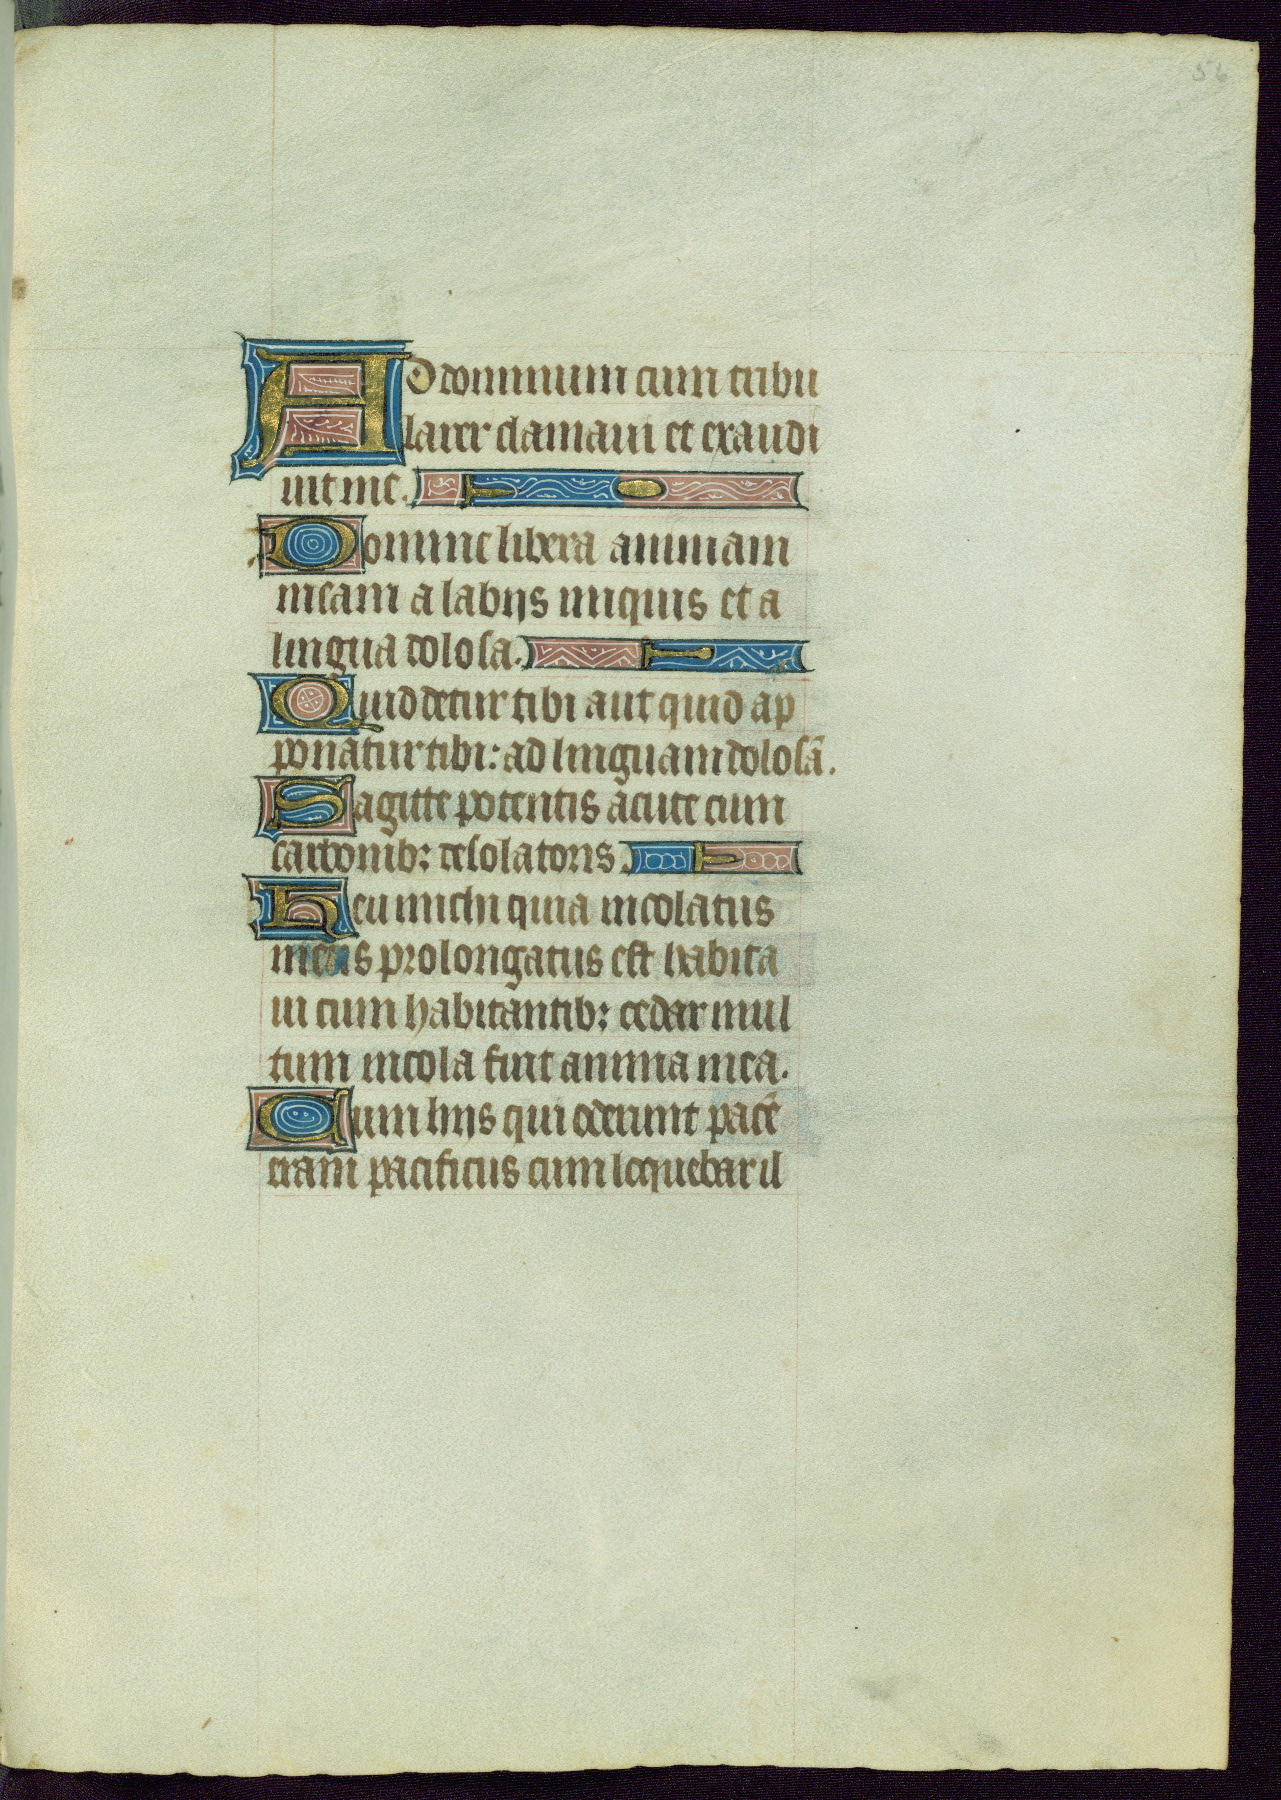 56
AD dominum cum tribu
larer clamaui et exaudi
uit me.
Domine libera animam
meam a labijs iniquis et a
lingua dolosa.
Quid detur tibi aut quid ap
ponatur tibi: ad linguam dolosā.
Sagitte potentis acute cum
carbonib: desolatoris.
Heu michi quia incolatus
meus prolongatus est habita
ui cum habitantib: cedar mul
tum incola fuit anima mea.
Cum hijs qui oderunt pacē
eram pacificus cum loquebar il